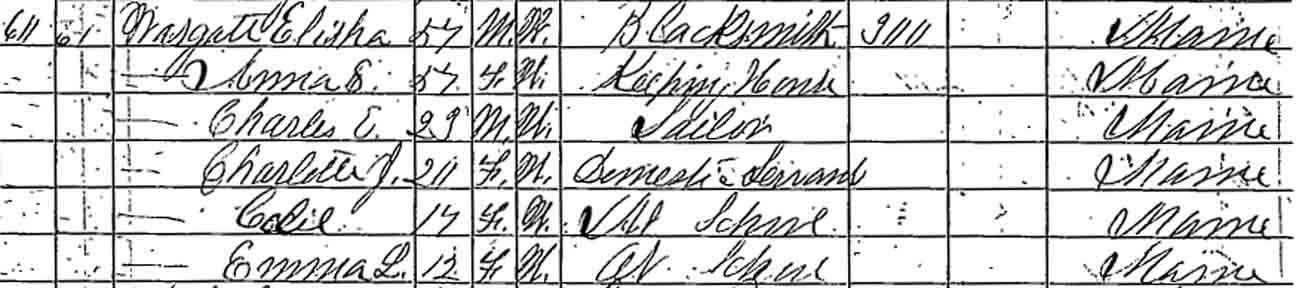 Wasgatt Elisha 57 M. W. Blacksmith 300 Maine
— Anna S. 57 F. W. Keeping House Maine
— Charles E. 23 M. W. Sailor Maine
— Charlotte J. 20 F. W. Domestic Servant Maine
— 17 F. W. At School Maine
— Emma L. 12 F. W. At School Maine